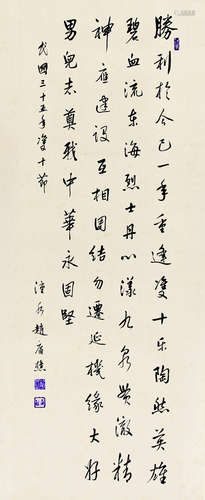 勝利於今已一年重逢雙十乐陶然英雄
碧血流东海烈士丹心漾九泉貫澈精
神應建設互相團結勿遷延機緣大好
男兒志奠我中華永固堅
民國三十五年雙十節
趙